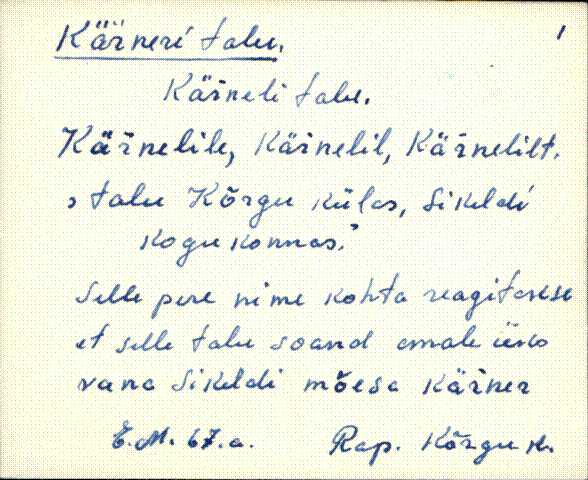 Kärneri talu. 1
Kärneli talu.
Kärnelile, Kärnelil, Kärnelilt.
, talu Kõrgu külas, Sikeldi
kogukonnas."
Selle pere nime kohta reagitasse
et selle talu soand omale üks
vana Sikeldi mõesa kärner
E.M. 67.a. Rap. Kõrgu k.